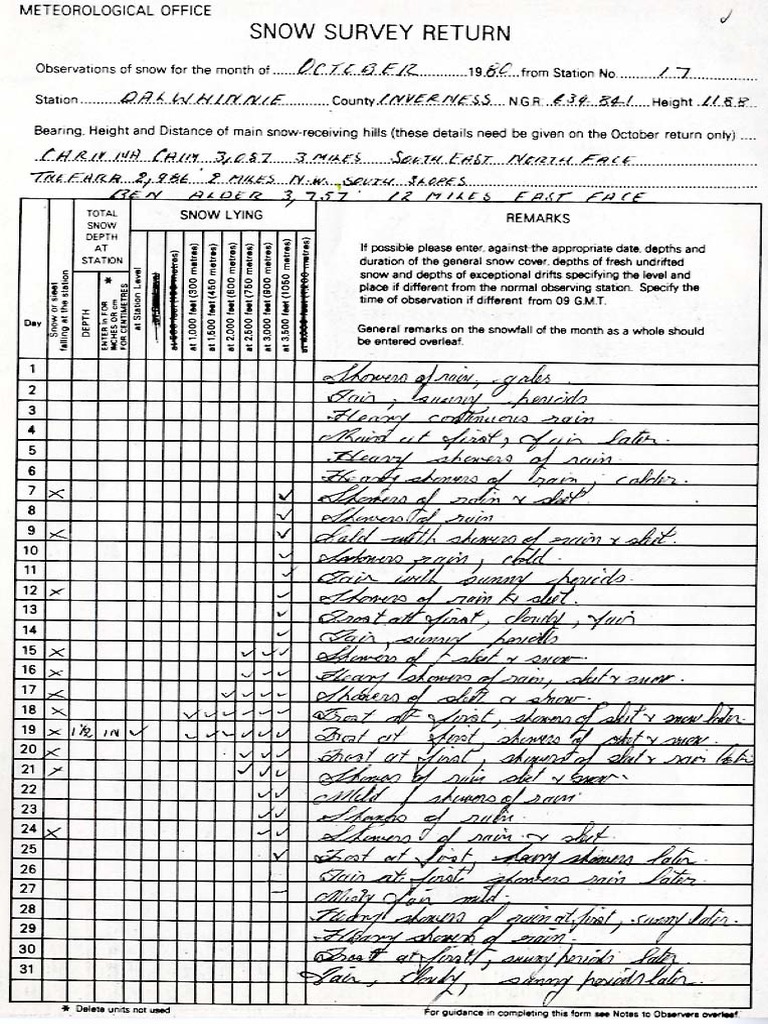 METEOROLOGICAL OFFICE
SNOW SURVEY RETURN
Observations of snow for the month of OCTOBER 1980 from Station No. 17
Station DALWHINNIE County INVERNESS NGR 639 841 Height 1188
Bearing, Height and Distance of main snow-receiving hills (these details need be given on the October return only)
3,087 3 MILES SOUTH EAST NORTH FACE
2,986' 2 MILES N.W. SOUTH SLOPES
BEN ALDER 3,757' 12 MILES EAST FACE
Day
Snow or sleet falling at the station
TOTAL SNOW DEPTH AT STATION
DEPTH
ENTER in FOR INCHES OR cm FOR CENTIMETRES *
SNOW LYING
at Station Level
at 1,000 feet (300 metres)
at 1,500 feet (450 metres)
at 2,000 feet (600 metres)
at 2,500 feet (750 metres)
at 3,000 feet (900 metres)
at 3,500 feet (1050 metres)
REMARKS
If possible please enter, against the appropriate date, depths and
duration of the general snow cover, depths of fresh undrifted
snow and depths of exceptional drifts specifying the level and
place if different from the normal observing station. Specify the
time of observation if different from 09 G.M.T.
General remarks on the snowfall of the month as a whole should
be entered overleaf.
1 Showers of rain, gales
2 Fair, sunny periods
3 Heavy continuous rain
4 at first, fair later.
5 Heavy showers of rain
6 Heavy showers of rain, colder.
7 x ✓ Showers of rain & sleet
8 ✓ Showers of rain
9 x ✓ Cold with showers of rain & sleet.
10 ✓ rain, cold.
11 ✓ Fair with sunny periods.
12 x ✓ Showers of rain & sleet.
13 ✓ Frost at first, cloudy, fair
14 ✓ Fair, sunny periods
15 x ✓ ✓ ✓ Showers of sleet & snow
16 x ✓ ✓ ✓ Heavy showers of rain, sleet & snow.
17 x ✓ ✓ ✓ ✓ Showers of sleet & snow.
18 x ✓ ✓ ✓ ✓ ✓ ✓ Frost at first, showers of sleet & snow later.
19 x 1½ IN ✓ ✓ ✓ ✓ ✓ ✓ ✓ Frost at first showers of sleet & snow.
20 x ✓ ✓ ✓ Frost at first, showers of sleet & rain later
21 x ✓ ✓ ✓ Showers of rain sleet & snow
22 ✓ ✓ Mild, showers of rain
23 ✓ ✓ Showers of rain.
24 x ✓ ✓ Showers of rain & sleet.
25 ✓ Frost at first, heavy showers later.
26 Fair at first, showers rain later.
27 Misty fair mild.
28 Heavy showers of rain at first, sunny later.
29 Heavy showers of rain.
30 Frost at first, sunny periods later.
31 Fair, cloudy, sunny periods later.
* Delete units not used
For guidance in completing this form see Notes to Observers overleaf.